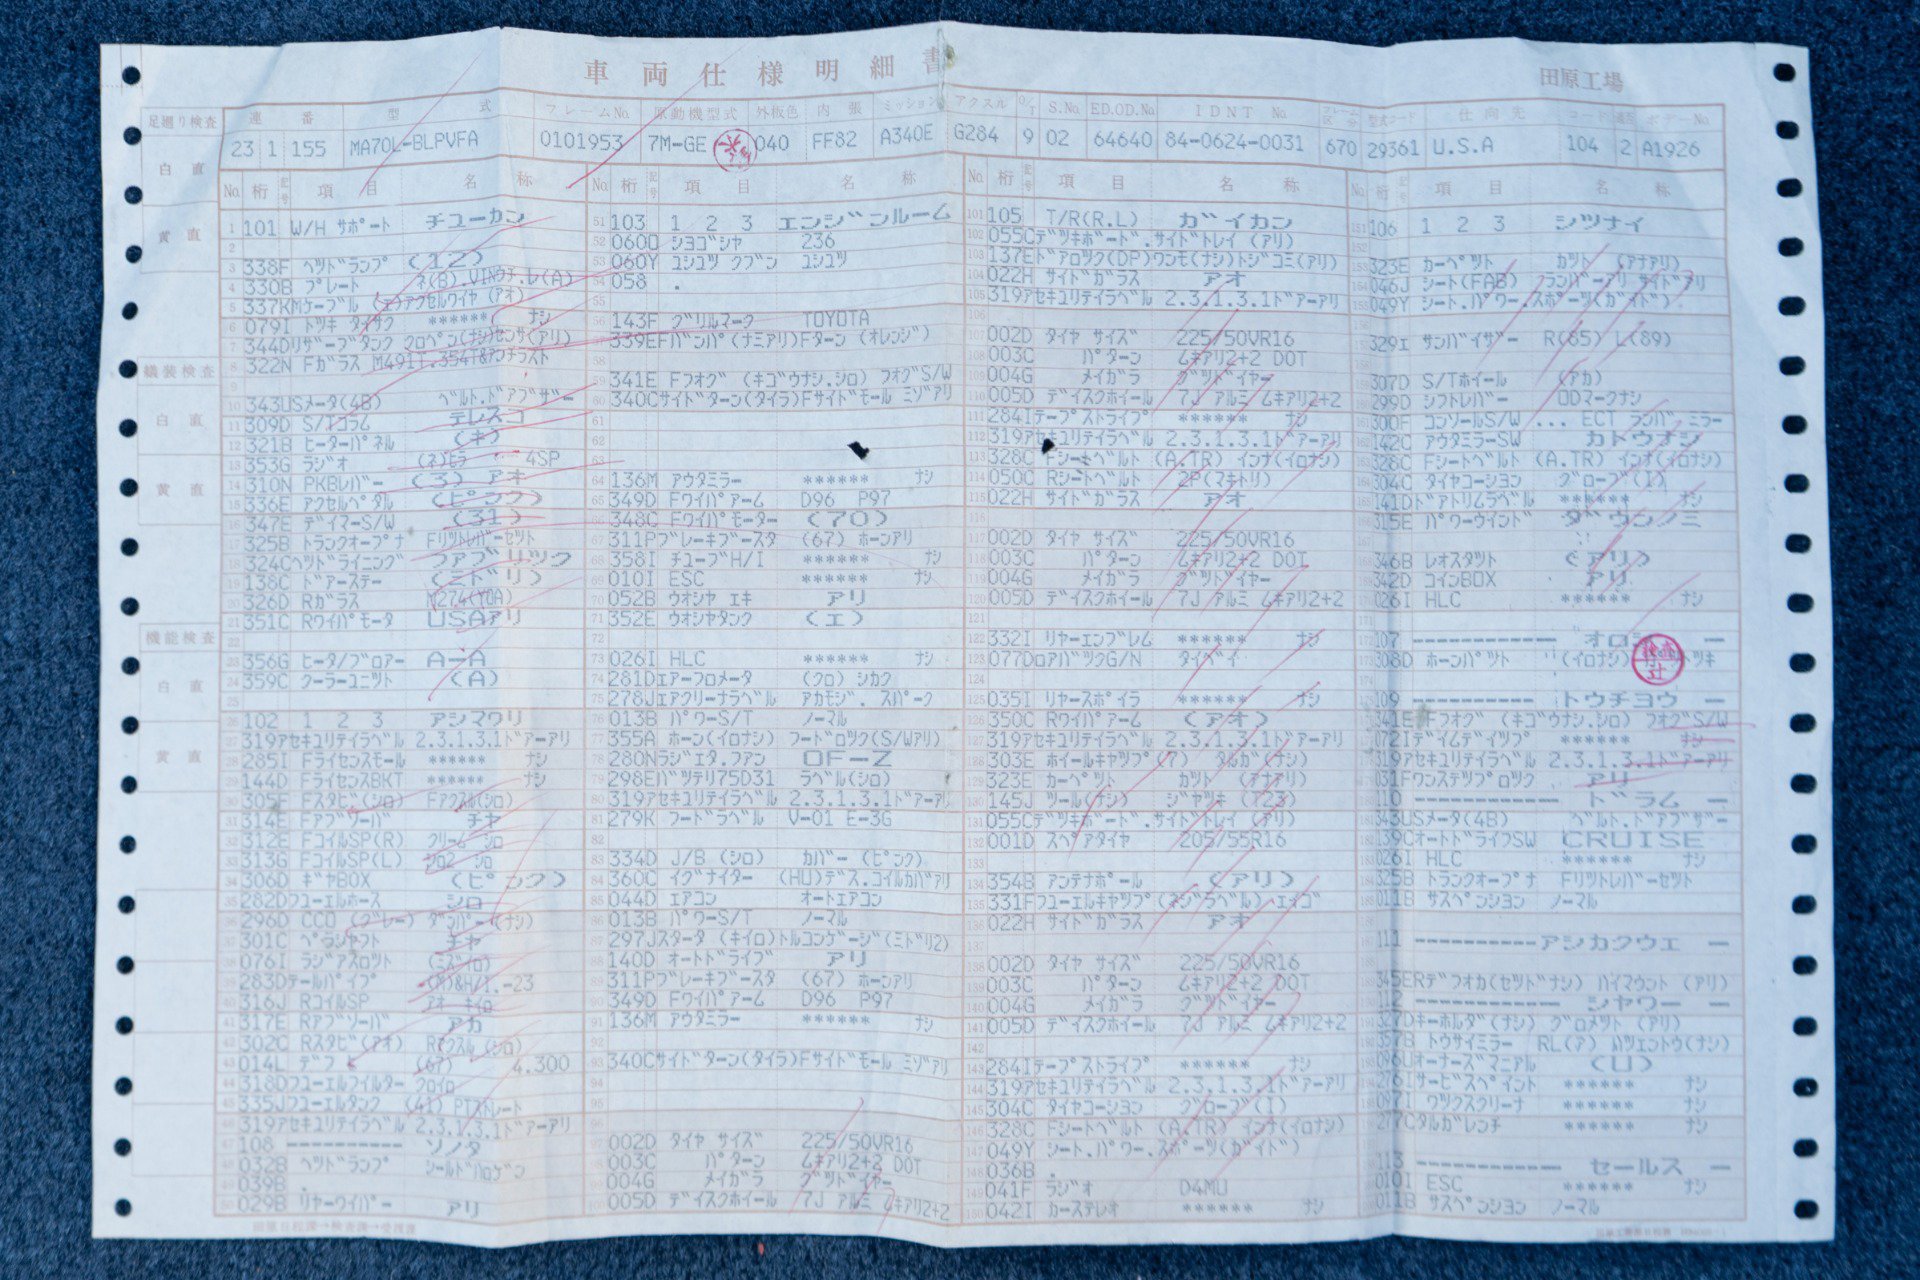 車両仕様明細書
田原工場
足廻り検査 連番 型式 フレームNo. 原動機型式 外板色 内張 ミッション アクスル S.No. ED.OD.No IDNT No 仕向先 コード ボデーNo
23 1 155 MA70L-BLPVFA 0101953 7M-GE 040 FF82 A340E G284 9 02 64640 84-0624-0031 670 29361 U.S.A 104 2 A1926
白直
黄直
艤装検査
白直
黄直
機能検査
白直
黄直
No. 桁 記号 項目 名称
1 101 W/H サポート チユーカン
2
3 338F ヘツドランプ (12)
4 330B プレート
5 337K
6 079I ****** ナシ
7 344D
8 322N Fガラス
9
10 343U Sメータ(4B) ベルト.ドアブザー
11 309D S/Tコラム テレスコ
12 321B ヒーターパネル (キ)
13 353G ラジオ 4SP
14 310N PKBレバー (3) アオ
15 336E アクセルペダル (ピンク)
16 347E デイマーS/W (31)
17 325B トランクオープナ Fリツトレバーセツト
18 324C ヘツドライニング フアブリツク
19 138C ドアーステー (ミドリ)
20 326D Rガラス
21 351C Rワイパモータ USAアリ
22
23 356G ヒータ/ブロアー A-A
24 359C クーラーユニツト (A)
25
26 102 1 2 3 アシマワリ
27 319ア セキユリテイラベル 2.3.1.3.1ドアーアリ
28 285I Fライセンスモール ****** ナシ
29 144D FライセンスBKT ****** ナシ
30 305F Fスタビ(シロ) Fアクスル(シロ)
31 314E Fアブソーバ チヤ
32 312E FコイルSP(R) クリーム シロ
33 313G FコイルSP(L) シロ2 シロ
34 306D ギヤBOX (ピンク)
35 282D フユーエルホース シロ
36 296D CCO (グレー) ダンパー(ナシ)
37 301C ペラシヤフト チヤ
38 076I ラジアスロツト (ミズイロ)
39 283D テールパイプ
40 316J RコイルSP アオ キイロ
41 317E Rアブソーバ アカ
42 302C Rスタビ(アオ) Rアクスル(シロ)
43 014L デフ (67) 4.300
44 318D フユーエルフイルター クロイロ
45 335J フユーエルタンク (41) PTストレート
46 319ア セキユリテイラベル 2.3.1.3.1ドアーアリ
47 108 ---------- ソノタ
48 032B ヘツドランプ シールドハロゲン
49 039B .
50 029B リヤーワイパー アリ
No. 桁 記号 項目 名称
51 103 1 2 3 エンジンルーム
52 060D シヨゴシヤ 236
53 060Y ユシユツ クブン ユシユツ
54 058 .
55
56 143F グリルマーク TOYOTA
57 339E Fバンパ(ナミアリ)Fターン (オレンジ)
58
59 341E Fフオグ (キゴウナシ.シロ) フオグS/W
60 340C サイドターン(タイラ)Fサイドモール ミゾアリ
61
62
63
64 136M アウタミラー ****** ナシ
65 349D Fワイパアーム D96 P97
66 348C Fワイパモーター (70)
67 311P ブレーキブースタ (67) ホーンアリ
68 358I チユーブH/I ****** ナシ
69 010I ESC ****** ナシ
70 052B ウオシヤ エキ アリ
71 352E ウオシヤタンク (エ)
72
73 026I HLC ****** ナシ
74 281D エアーフロメータ (クロ) シカク
75 278J エアクリーナラベル アカモジ. スパーク
76 013B パワーS/T ノーマル
77 355A ホーン(イロナシ) フードロツク(S/Wアリ)
78 280N ラジエタ.フアン OF-Z
79 298E バツテリ75D31 ラベル(シロ)
80 319ア セキユリテイラベル 2.3.1.3.1ドアーアリ
81 279K フードラベル V-01 E-3G
82
83 334D J/B (シロ) カバー (ピンク)
84 360C イグナイター (HU)デス.コイルカバアリ
85 044D エアコン オートエアコン
86 013B パワーS/T ノーマル
87 297J スタータ (キイロ)トルコンゲージ(ミドリ2)
88 140D オートドライブ アリ
89 311P ブレーキブースタ (67) ホーンアリ
90 349D Fワイパアーム D96 P97
91 136M アウタミラー ****** ナシ
92
93 340C サイドターン(タイラ)Fサイドモール ミゾアリ
94
95
96
97 002D タイヤ サイズ 225/50VR16
98 003C パターン ムキアリ2+2 DOT
99 004G メイガラ グツドイヤー
100 005D デイスクホイール 7J アルミ ムキアリ2+2
No. 桁 記号 項目 名称
101 105 T/R(R.L) ガイカン
102 055C デツキボード.サイドトレイ (アリ)
103 137E ドアロツク(DP)ワンモ(ナシ)トジコミ(アリ)
104 022H サイドガラス アオ
105 319ア セキユリテイラベル 2.3.1.3.1ドアーアリ
106
107 002D タイヤ サイズ 225/50VR16
108 003C パターン ムキアリ2+2 DOT
109 004G メイガラ グツドイヤー
110 005D デイスクホイール 7J アルミ ムキアリ2+2
111 284I テープストライプ ****** ナシ
112 319ア セキユリテイラベル 2.3.1.3.1ドアーアリ
113 328C Fシートベルト (A.TR) インナ(イロナシ)
114 050C Rシートベルト 2P(マキトリ)
115 022H サイドガラス アオ
116
117 002D タイヤ サイズ 225/50VR16
118 003C パターン ムキアリ2+2 DOT
119 004G メイガラ グツドイヤー
120 005D デイスクホイール 7J アルミ ムキアリ2+2
121
122 332I リヤーエンブレム ****** ナシ
123 077D ロアバツクG/N タイベイ
124
125 035I リヤースポイラ ****** ナシ
126 350C Rワイパアーム (アオ)
127 319ア セキユリテイラベル 2.3.1.3.1ドアーアリ
128 303E ホイールキヤツプ(7) タルガ(ナシ)
129 323E カーペツト カツト (アナアリ)
130 145J ツール(ナシ) ジヤツキ (T23)
131 055C デツキボード.サイドトレイ (アリ)
132 001D スペアタイヤ 205/55R16
133
134 354B アンテナポール (アリ)
135 331F フユーエルキヤツプ(ネジラベル)エイゴ
136 022H サイドガラス アオ
137
138 002D タイヤ サイズ 225/50VR16
139 003C パターン ムキアリ2+2 DOT
140 004G メイガラ グツドイヤー
141 005D デイスクホイール 7J アルミ ムキアリ2+2
142
143 284I テープストライプ ****** ナシ
144 319ア セキユリテイラベル 2.3.1.3.1ドアーアリ
145 304C タイヤコーシヨン グローブ(I)
146 328C Fシートベルト (A.TR) インナ(イロナシ)
147 049Y シート.パワー.スポーツ(ガイド)
148 036B .
149 041F ラジオ D4MU
150 042I カーステレオ ****** ナシ
No. 桁 記号 項目 名称
151 106 1 2 3 シツナイ
152
153 323E カーペツト カツト (アナアリ)
154 046J シート(FAB) フランバーアリ サイドアリ
155 049Y シート.パワー.スポーツ(ガイド)
156
157 329エ サンバイザー R(85) L(89)
158
159 307D S/Tホイール (アカ)
160 299D シフトレバー ODマークナシ
161 300F コンソールS/W ... ECT ランバー ミラー
162 142C アウタミラーSW カトウナシ
163 328C Fシートベルト (A.TR) インナ(イロナシ)
164 304C タイヤコーシヨン グローブ(I)
165 141D ドアトリムラベル ****** ナシ
166 315E パワーウインド ダウンノミ
167
168 346B レオスタツト (アリ)
169 342D コインBOX アリ
170 026I HLC ****** ナシ
171
172 107 ------------
173 308D ホーンパツト (イロナシ)
174
175 109 ------------ トウチヨウ -
176 341E Fフオグ (キゴウナシ.シロ) フオグS/W
177 072I デイムデイツプ ****** ナシ
178 319ア セキユリテイラベル 2.3.1.3.1ドアーアリ
179 031F ワンステツプロツク アリ
180 110 ------------ ドラム -
181 343U Sメータ(4B) ベルト.ドアブザー
182 139C オートドライブSW CRUISE
183 026I HLC ****** ナシ
184 325B トランクオープナ Fリツトレバーセツト
185 011B サスペンシヨン ノーマル
186
187 111 ---------- アシカクウエ -
188
189 345E Rデフオカ(セツトナシ) ハイマウント (アリ)
190 112 ------------ シヤワー -
191 327D キーホルダ(ナシ) グロメツト (アリ)
192 357B トウサイミラー RL(ア) ハツエントウ(ナシ)
193 096U オーナーズマニアル (U)
194 276I サービスペイント ****** ナシ
195 097I ワツクスクリーナ ****** ナシ
196 277C タルガレンチ ******
197
198 113 ------------ セールス -
199 010I ESC ****** ナシ
200 011B サスペンシヨン ノーマル